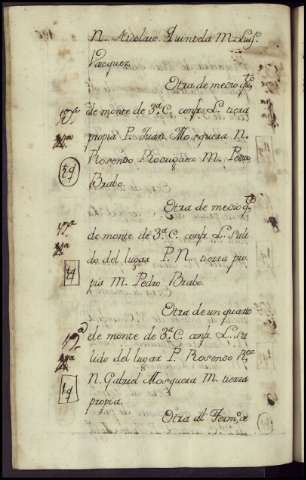 N. Nicolas Quintela M. Luis
Vazquez
Otra de medio
de monte de 3ª C. confr. L. tierra
propia P. Juan Mosquera N.
Rosendo Rodriguez M. Pedro
Brabo.
Otra de medio
de monte de 3ª C. confr. L. Sali
do del lugar P. N. tierra pro
pia M. Pedro Brabo
Otra de un quarto
de monte de 3ª C. confr. L. Sa
lido del lugar P. Rosendo
N. Gabriel Mosquera M. tierra
propia.
Otra al